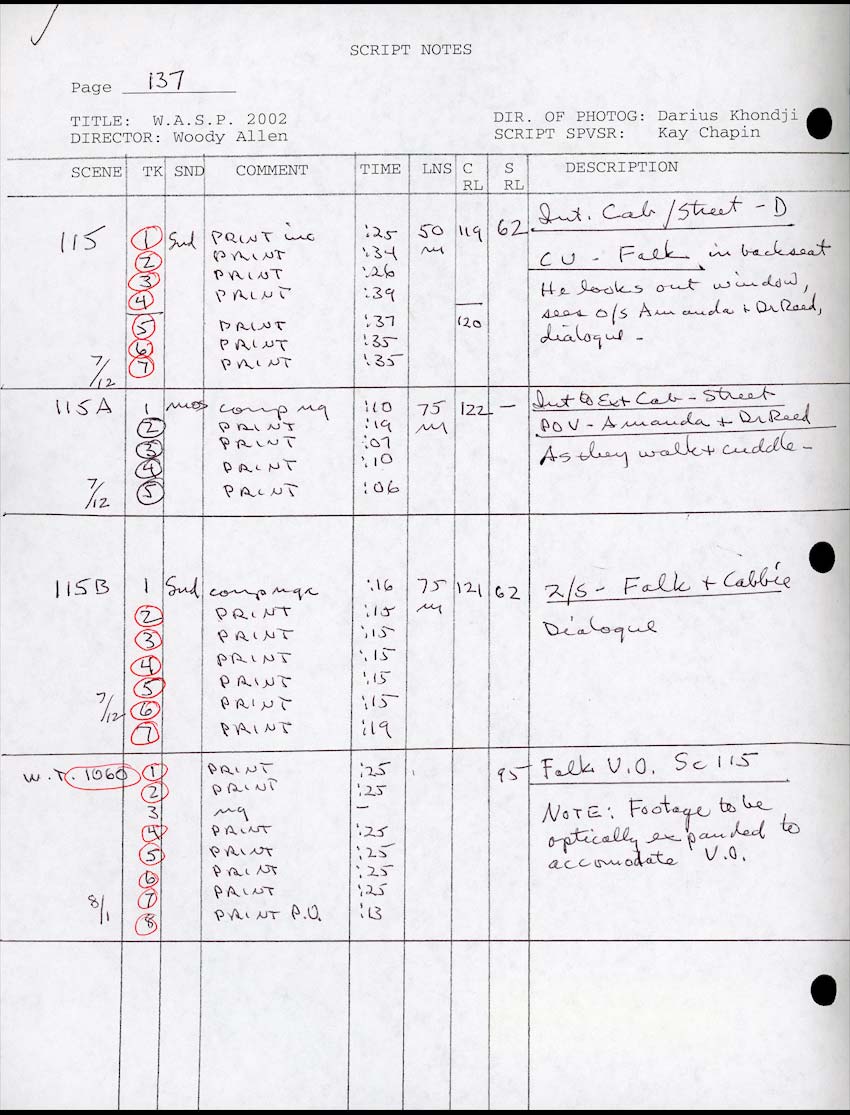 SCRIPT NOTES
Page 137
TITLE: W.A.S.P. 2002 DIR. OF PHOTOG: Darius Khondji
DIRECTOR: Woody Allen SCRIPT SPVSR: Kay Chapin
SCENE TK SND COMMENT TIME LNS C RL S RL DESCRIPTION
Int. Cab/Street - D
115 1 Snd PRINT inc :25 50 119 62
2 PRINT :34 m CU - Falk, in backseat
3 PRINT :26 He looks out window,
4 PRINT :39 sees o/s Amanda + Dr Reed,
5 PRINT :37 120 dialogue -
6 PRINT :35
7 PRINT :35
7/12
115A 1 mos comp ng :10 75 122 - Int to Ext Cab - Street
2 PRINT :19 m POV - Amanda + Dr Reed
3 PRINT :07
4 PRINT :10 As they walk + cuddle -
7/12 5 PRINT :06
115B 1 Snd comp nge :16 75 121 62 2/s - Falk + Cabbie
2 PRINT :15 m
3 PRINT :15 Dialogue
4 PRINT :15
5 PRINT :15
7/12 6 PRINT :15
7 PRINT :19
W.T. 1060 1 PRINT :25 95 Falk V.O. Sc 115
2 PRINT :25
3 ng - NOTE: Footage to be
4 PRINT :25 optically expanded to
5 PRINT :25 accomodate V.O.
6 PRINT :25
7 PRINT :25
8/1 8 PRINT P.U. :13